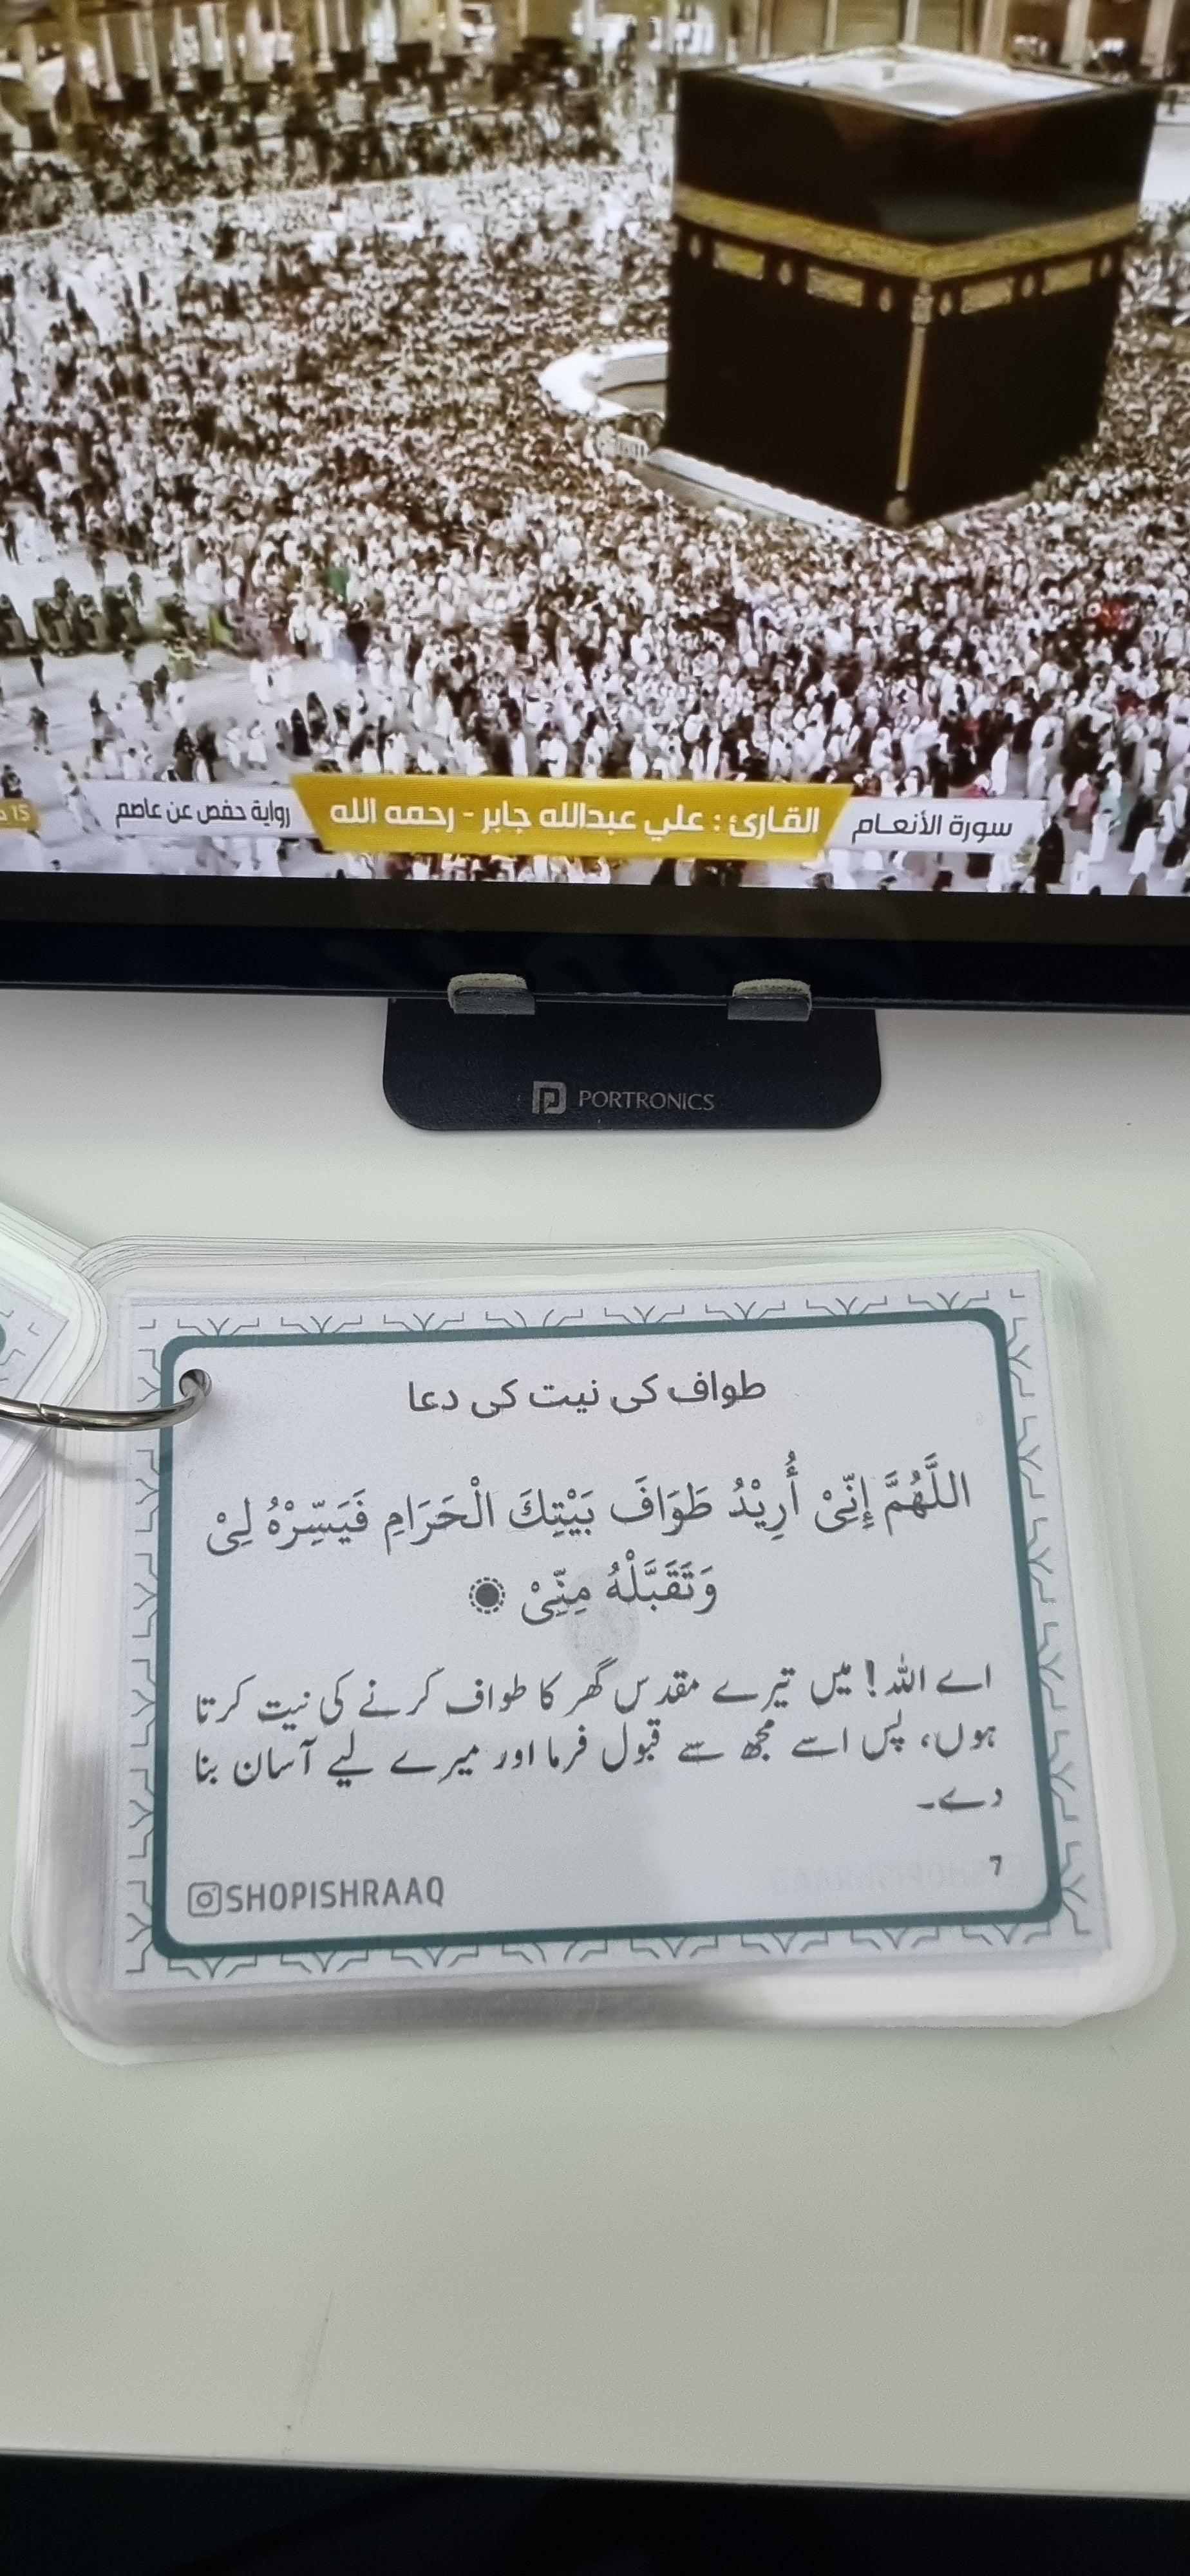 سورة الأنعام القارئ : علي عبدالله جابر - رحمه الله رواية حفص عن عاصم 15
PORTRONICS
طواف کی نیت کی دعا
اللَّهُمَّ إِنِّىْ أُرِيْدُ طَوَافَ بَيْتِكَ الْحَرَامِ فَيَسِّرْهُ لِىْ
وَتَقَبَّلْهُ مِنِّىْ
اے اللہ! میں تیرے مقدس گھر کا طواف کرنے کی نیت کرتا
ہوں، پس اسے مجھ سے قبول فرما اور میرے لیے آسان بنا
دے۔
7
SHOPISHRAAQ